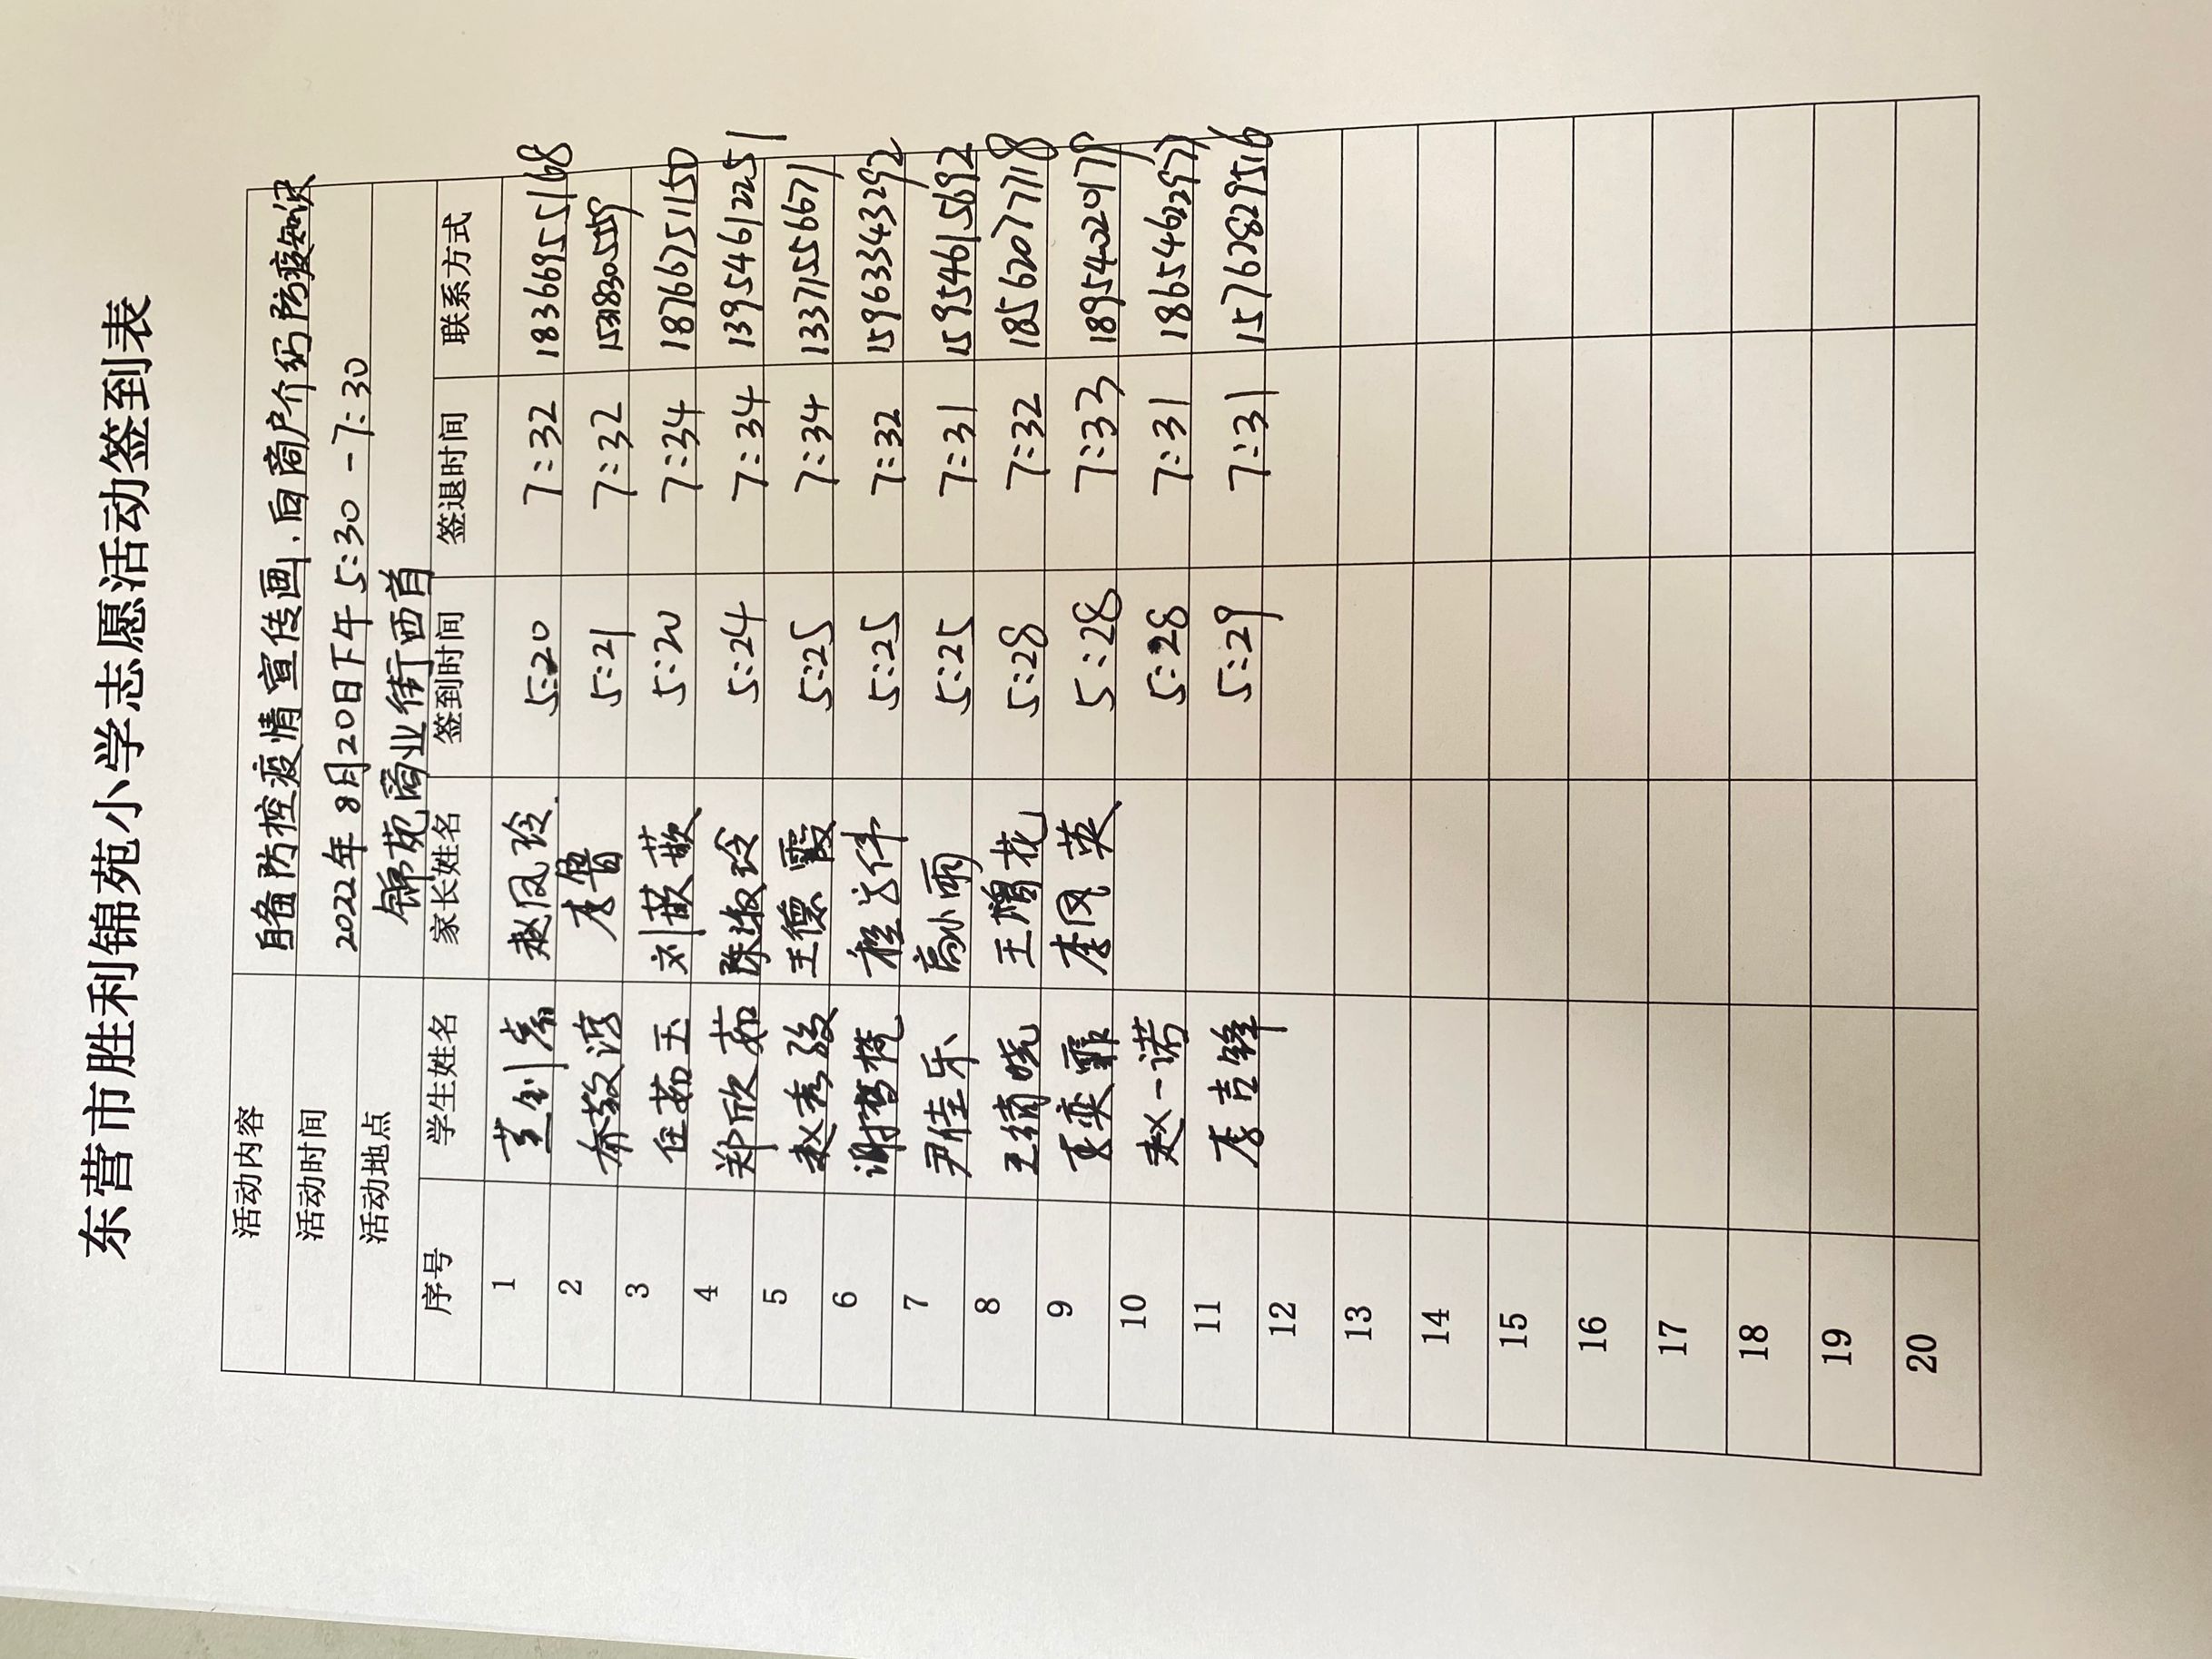 东营市胜利锦苑小学志愿活动签到表
活动内容 自备防控疫情宣传画,向商户介绍防疫知识
活动时间 2022年8月20日下午5:30-7:30
活动地点 锦苑商业街西首
序号 学生姓名 家长姓名 签到时间 签退时间 联系方式
1 赵凤玲 5:20 7:32 18366955168
2 李鲁 5:21 7:32
3 任茹玉 刘歆歆 5:20 7:34 18766751150
4 郑欣茹 陈淑玲 5:24 7:34 13954612251
5 赵秀弢 王德霞 5:25 7:34 13371556671
6 5:25 7:32 15963343292
7 尹佳乐 高小雨 5:25 7:31 15954615692
8 王增花 5:28 7:32 18562077718
9 李风英 5:28 7:33 18954020179
10 赵一诺 5:28 7:31 18654622977
11 李吉锋 5:29 7:31 15762829516
12
13
14
15
16
17
18
19
20